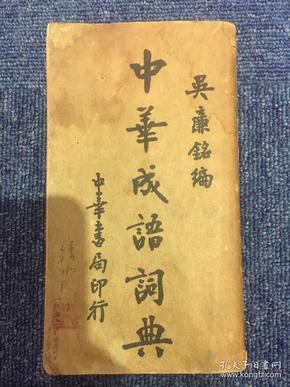 吳廉銘編
中華成語詞典
中華書局印行
孔夫子旧书网